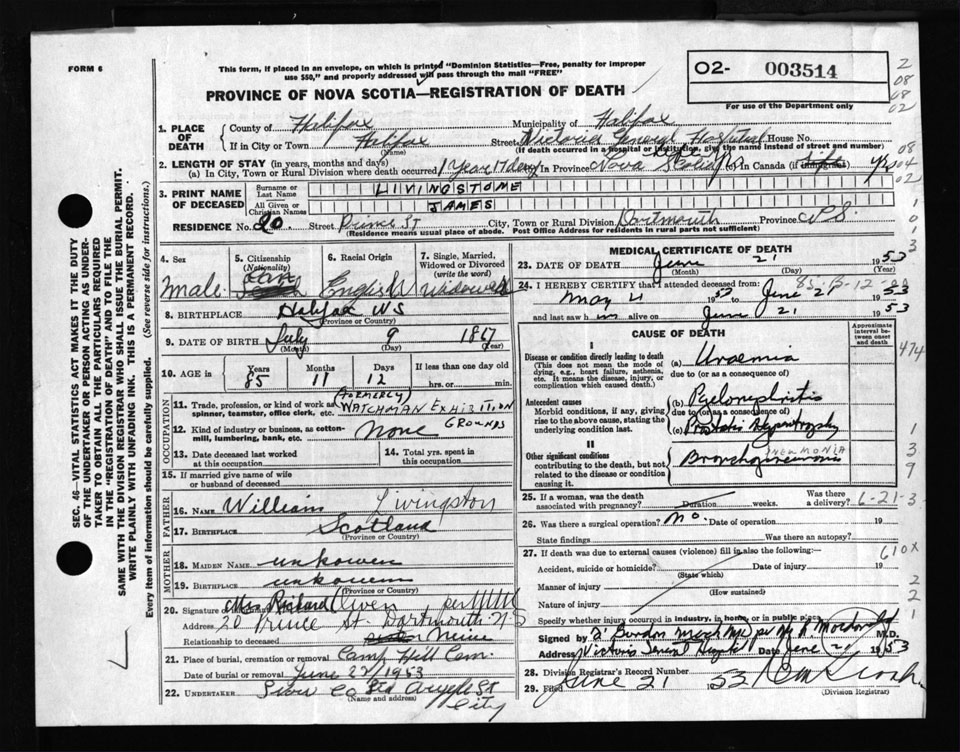 FORM 6
This form, if placed in an envelope, on which is printed "Dominion Statistics—Free, penalty for improper
use $50," and properly addressed will pass through the mail "FREE"
PROVINCE OF NOVA SCOTIA—REGISTRATION OF DEATH
O2- 003514
For use of the Department only
2
08
08
02
08
04
02
1. PLACE OF DEATH
County of Halifax Municipality of Halifax
If in City or Town Halifax Street Victoria General Hospital House No.
(Name) (If death occurred in a hospital or institution, give the name instead of street and number)
2. LENGTH OF STAY (in years, months and days)
(a) In City, Town or Rural Division where death occurred 1 year 17 days In Province Nova Scotia In Canada (if immigrant) yrs
3. PRINT NAME OF DECEASED
Surname or Last Name LIVINGSTONE
All Given or Christian Names JAMES
RESIDENCE No. 20. Street Prince St City, Town or Rural Division Dartmouth Province
(Residence means usual place of abode. Post Office Address for residents in rural parts not sufficient)
SEC. 46—VITAL STATISTICS ACT MAKES IT THE DUTY
OF THE UNDERTAKER OR PERSON ACTING AS UNDER-
TAKER TO OBTAIN ALL THE PARTICULARS REQUIRED
IN THE "REGISTRATION OF DEATH" AND TO FILE THE
SAME WITH THE DIVISION REGISTRAR WHO SHALL ISSUE THE BURIAL PERMIT.
WRITE PLAINLY WITH UNFADING INK. THIS IS A PERMANENT RECORD.
Every item of information should be carefully supplied. (See reverse side for instructions.)
4. Sex
Male
5. Citizenship
(Nationality)
6. Racial Origin
English
7. Single, Married, Widowed or Divorced
(write the word)
Widowed
8. BIRTHPLACE Halifax NS
(Province or Country)
9. DATE OF BIRTH July 9 1867
(Month) (Day) (Year)
10. AGE Years 85 Months 11 Days 12 If less than one day
hrs. or min.
OCCUPATION
(FORMERLY)
11. Trade, profession, or kind of work as spinner, teamster, office clerk, etc. WATCHMAN EXHIBITION
GROUNDS
12. Kind of industry or business, as cotton-mill, lumbering, bank, etc. None
13. Date deceased last worked at this occupation
14. Total yrs. spent in this occupation
15. If married give name of wife or husband of deceased
FATHER
16. NAME William Livingston
17. BIRTHPLACE Scotland
(Province or Country)
MOTHER
18. MAIDEN NAME unkowen
19. BIRTHPLACE unkouem
(Province or Country)
20. Signature of Mrs. Richard Oliver per
Address 20 Prince St. Dartmouth N.S
Relationship to deceased Neice
21. Place of burial, cremation or removal Camp Hill Cem.
Date of burial or removal June 22/1953
22. UNDERTAKER Snow Co Ltd Argyle St
(Name and address) City
MEDICAL CERTIFICATE OF DEATH
23. DATE OF DEATH June 21 1953
(Month) (Day) (Year)
24. I HEREBY CERTIFY that I attended deceased from:
May 4 1952 to June 21 1953
and last saw h im alive on June 21 1953
CAUSE OF DEATH
Approximate interval between onset and death
I
Disease or condition directly leading to death
(This does not mean the mode of dying, e.g., heart failure, asthenia, etc. It means the disease, injury, or complication which caused death.)
(a) Uraemia
due to (or as a consequence of)
Antecedent causes
Morbid conditions, if any, giving rise to the above cause, stating the underlying condition last.
(b) Pyelonephritis
due to (or as a consequence of)
(c) Prostatic Hypertrophy
II
Other significant conditions
contributing to the death, but not related to the disease or condition causing it.
PNEUMONIA
Bronchopneumonia
474
1
3
9
25. If a woman, was the death associated with pregnancy? Duration weeks. Was there a delivery?
6-21-3
26. Was there a surgical operation? No Date of operation 19
State findings Was there an autopsy?
27. If death was due to external causes (violence) fill in also the following:—
610x
Accident, suicide or homicide? Date of injury 19
(State which)
Manner of injury
(How sustained)
Nature of injury
2
2
1
Specify whether injury occurred in industry, in home, or in public place
Signed by M.D.
Address Victoria General Hospital Date June 21 1953
28. Division Registrar's Record Number
29. Filed June 21 1953
(Division Registrar)